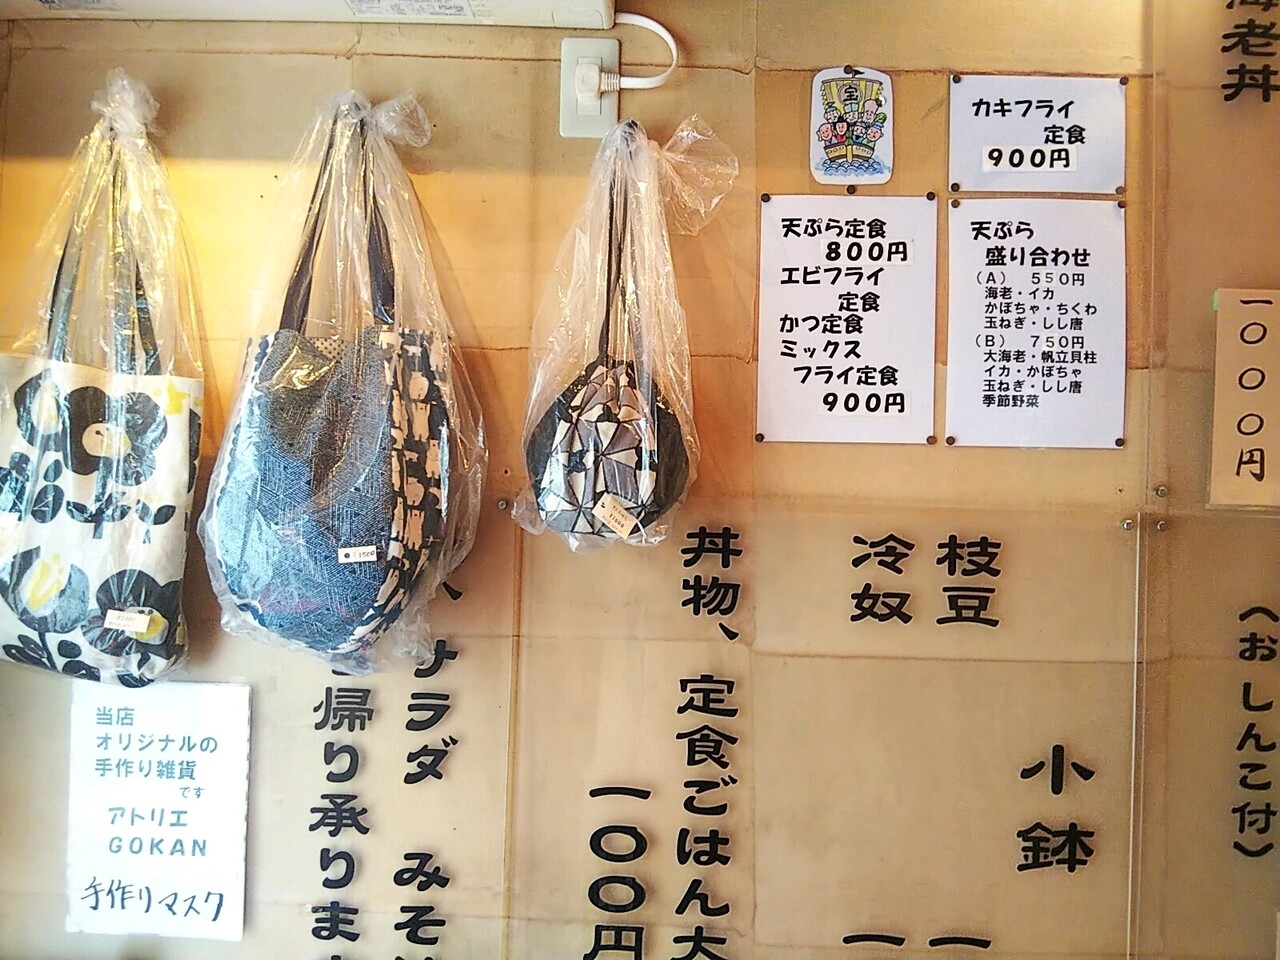 海老丼
一〇〇〇円
(おしんこ付)
宝
カキフライ
定食
900円
天ぷら定食
800円
エビフライ
定食
かつ定食
ミックス
フライ定食
900円
天ぷら
盛り合わせ
(A) 550円
海老・イカ
かぼちゃ・ちくわ
玉ねぎ・しし唐
(B) 750円
大海老・帆立貝柱
イカ・かぼちゃ
玉ねぎ・しし唐
季節野菜
小鉢
枝豆
一
冷奴
一
丼物、定食ごはん大
一〇〇円
、サラダ みそ
帰り承りま
¥1500
当店
オリジナルの
手作り雑貨
です
アトリエ
GOKAN
手作りマスク